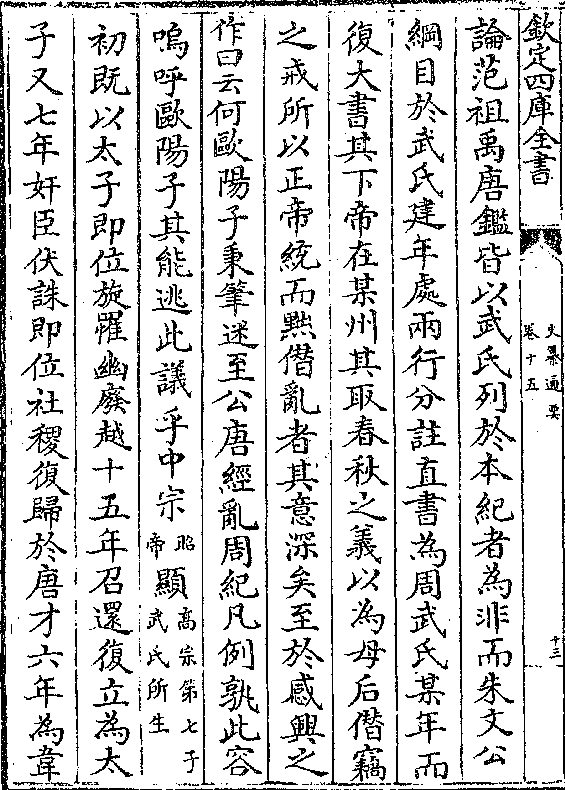 欽定四庫全書
史纂通要
卷十五
十三
論范祖禹唐鑑皆以武氏列於本紀者為非而朱文公
綱目於武氏建年處兩行分註直書為周武氏某年而
復大書其下帝在某州其取春秋之義以為母后僭竊
之戒所以正帝統而黜僭亂者其意深矣至於感興之
作曰云何歐陽子秉筆迷至公唐經亂周紀凡例孰此容
嗚呼歐陽子其能逃此議乎中宗昭帝顯高宗第七子武氏所生
初既以太子即位旋罹幽廢越十五年召還復立為太
子又七年奸臣伏誅即位社稷復歸於唐才六年為韋